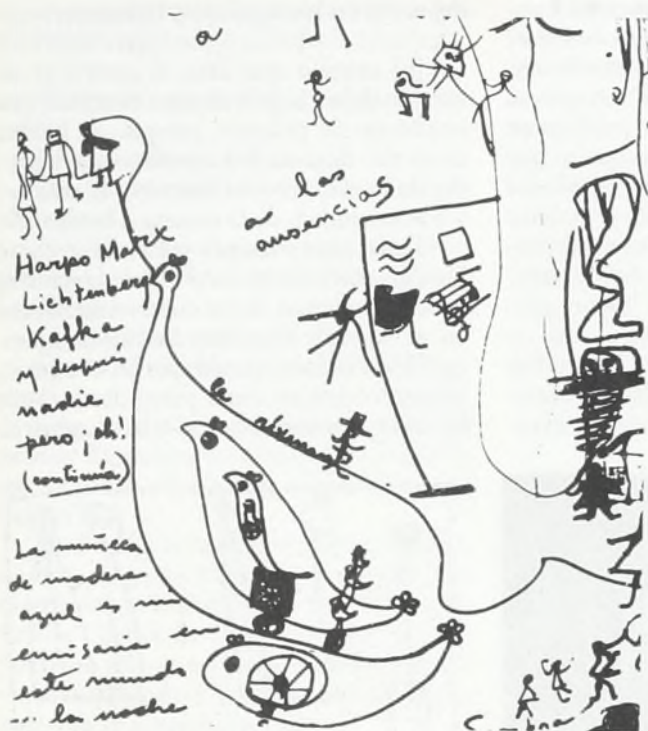 a
a las
ausencias
Harpo Marx
Lichtenberg
Kafka
y después
nadie
pero ¡ah!
(continúa)
La muñeca
de madera
azul es mi
emisaria en
este mundo
la noche